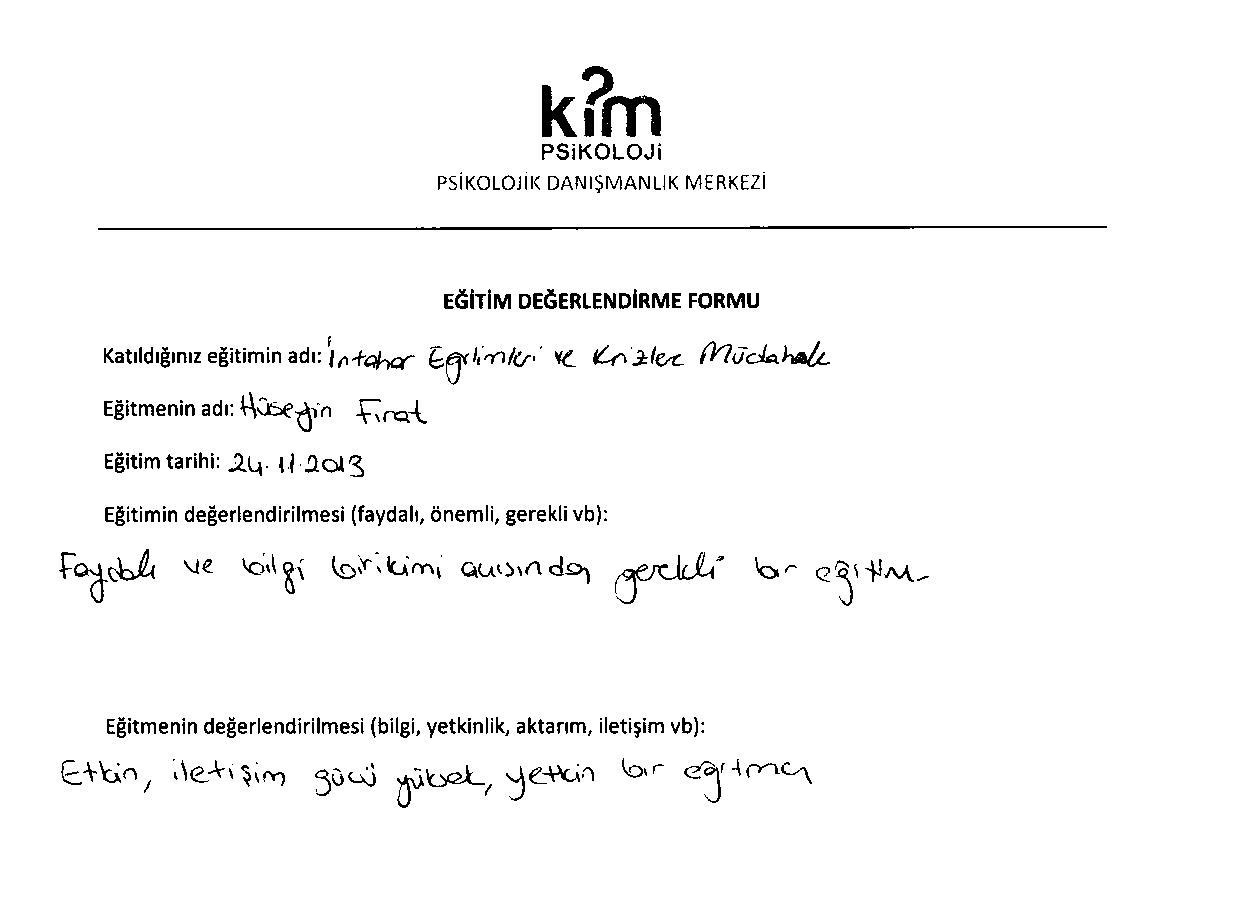 kim
PSiKOLOJi
PSİKOLOJİK DANIŞMANLIK MERKEZİ
EĞİTİM DEĞERLENDİRME FORMU
Katıldığınız eğitimin adı: İntahar Eğilimleri ve Krizlere Müdahale
Eğitmenin adı: Hüseyin Fırat
Eğitim tarihi: 24.11.2013
Eğitimin değerlendirilmesi (faydalı, önemli, gerekli vb):
Faydalı ve bilgi birikimi açısından gerekli bir eğitim
Eğitmenin değerlendirilmesi (bilgi, yetkinlik, aktarım, iletişim vb):
Etkin, iletişim gücü yüksek, yetkin bir eğitmen